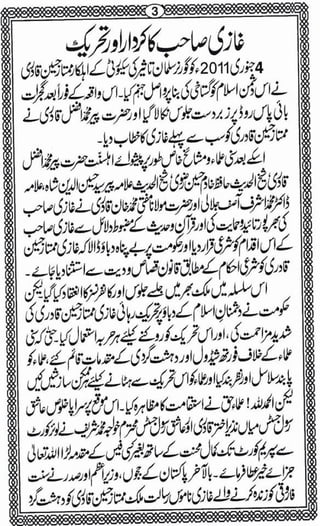 3
غازی صاحب کا کردار اور تحریک
4 جنوری 2011ء کو گورنر سلمان تاثیر کی سیکیورٹی کے اہلکار ممتاز حسین قادری
نے اس دشمن اسلام کو گستاخی کی بنا پر واصل جہنم کیا۔ اس واقعہ کے فوراً بعد گجرات
بائی پاس روڈ پر زبردست جلوس نکالا گیا اور حضرت پیر محمد افضل قادری نے
ممتاز حسین قادری کو سب سے پہلے غازی کا خطاب دیا۔
اسکے بعد سنی علماء و مشائخ خاص طور پر پیشوائے اہلسنت حضرت پیر محمد افضل
قادری، شیخ الحدیث حافظ خادم حسین رضوی، شیخ الحدیث علامہ پیر سید حسین الدین شاہ، علامہ
ڈاکٹر محمد اشرف آصف جلالی اور حضرت مولانا مفتی محمد خان قادری نے غازی صاحب
کی بھرپور تائید و حمایت کی اور قرآن و حدیث کے مضبوط دلائل سے غازی صاحب
کے اس اقدام کو شرعی قرار دیا اور حکومت پر بے پناہ دباؤ ڈالا کہ غازی ممتاز حسین
قادری کو شرعی احکام کے مطابق قانون قصاص و دیت سے استثناء دیا جائے۔
اس سلسلہ میں ملک بھر میں جلسے جلوس اور کانفرنسز کا انعقاد کیا گیا لیکن
حکومت نے دشمنان اسلام کے دباؤ پر تحریک رہائی غازی ممتاز حسین قادری کی
شدید مزاحمت کی، اور اس تحریک کو روکنے کیلئے ہر حربہ استعمال کیا۔ حتی کہ سنی
علماء کے خلاف فورتھ شیڈول اور دہشت گردی کے مقدمات قائم کئے، علماء کو
پابند سلاسل اور نظر بند کیا اور علماء کو اس تحریک سے ہٹانے کیلئے ہر ممکن سازشیں کیں
لیکن الحمد للہ! علماء حق نے استقامت کا مظاہرہ کیا۔ اس موقع پر سراپا خلوص عاشق
رسول جسٹس میاں نذیر اختر قادری اور عاشق رسول جسٹس محترم خواجہ محمد شریف نے لوئر کورٹ
سے سپریم کورٹ تک کمال محنت کے ساتھ بغیر کسی فیس کے مقدمہ لڑا اللہ تعالیٰ
جزائے خیر عطا فرمائے۔ بالآخر پاکستان کے ججوں، وزیر اعظم اور صدر نے سنت
فاروقی کو زندہ کرنے والے غازی ناموس رسالت ملک ممتاز حسین قادری کو دہشت گرد